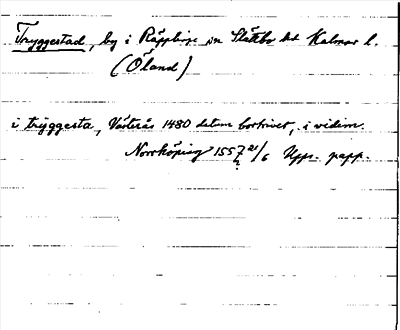 Tryggestad, by i Räpplinge sn Slättbo hd Kalmar l.
(Öland)
i tryggesta, Västerås 1480 datum bortrivet, i vidim.
Norrköping 1557 21/6 Upps. papp.
?